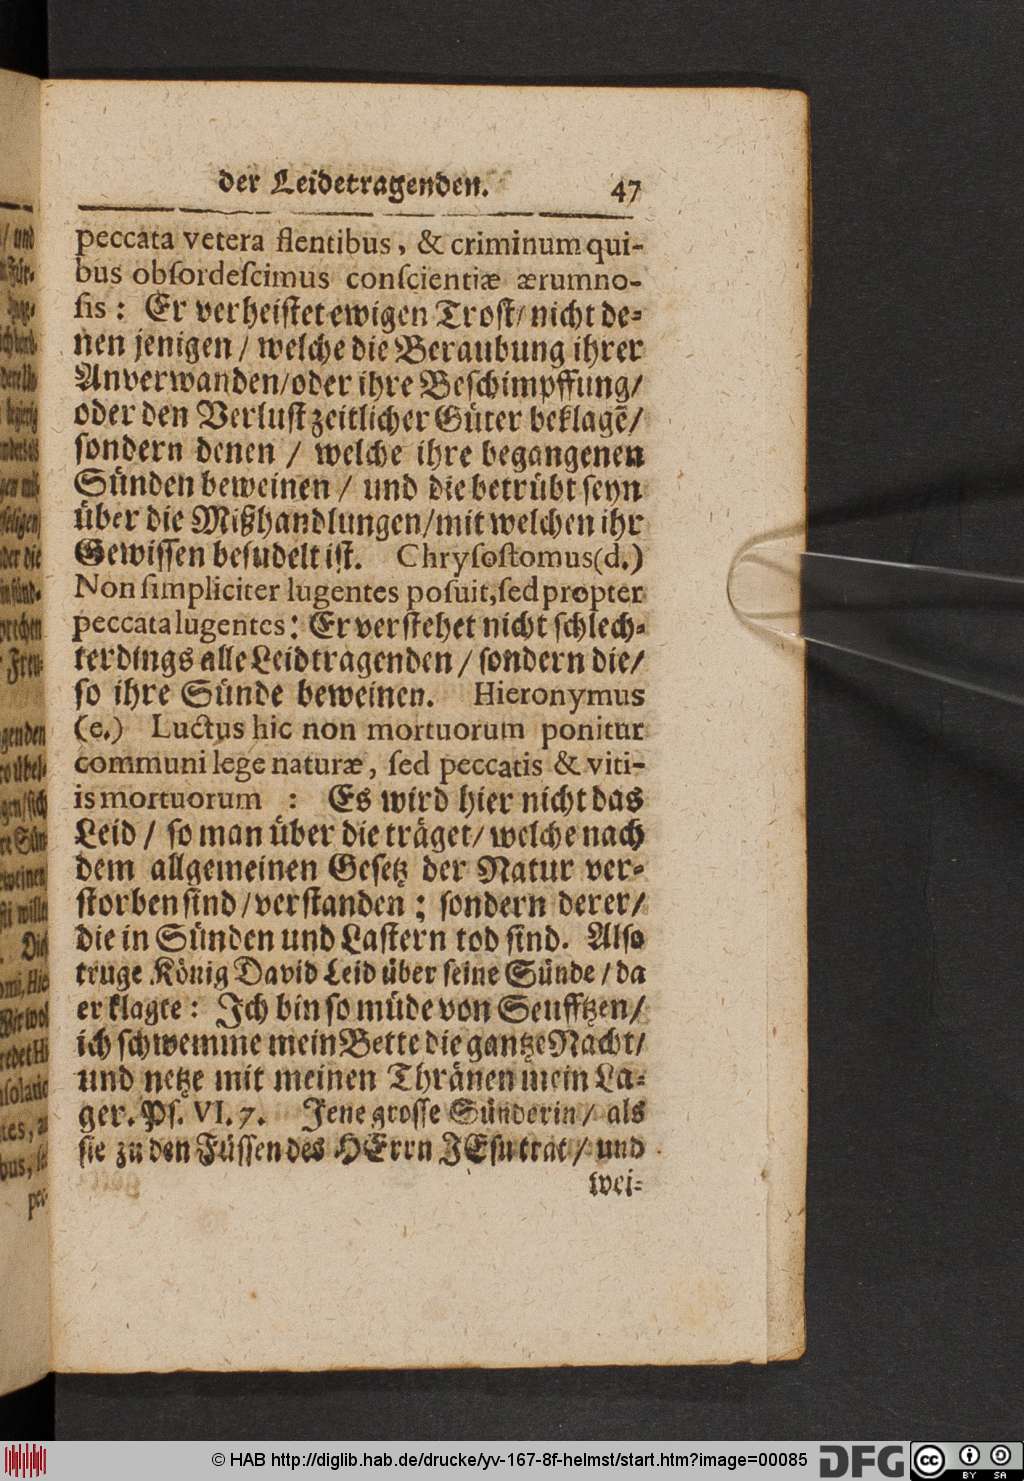 der Leidetragenden. 47
peccata vetera flentibus, & criminum qui-
bus obſordeſcimus conſcientiæ ærumno-
ſis : Er verheiſtet ewigen Troſt/ nicht de-
nen jenigen / welche die Beraubung ihrer
Anverwanden/oder ihre Beſchimpffung/
oder den Verluſt zeitlicher Güter beklagẽ/
ſondern denen / welche ihre begangenen
Sünden beweinen / und die betrübt ſeyn
über die Mißhandlungen/mit welchen ihr
Gewiſſen beſudelt iſt. Chryſoſtomus(d.)
Non ſimpliciter lugentes poſuit,ſed propter
peccata lugentes: Er verſtehet nicht ſchlech-
terdings alle Leidtragenden / ſondern die/
ſo ihre Sünde beweinen. Hieronymus
(e.) Luctus hic non mortuorum ponitur
communi lege naturæ, ſed peccatis & viti-
is mortuorum : Es wird hier nicht das
Leid / ſo man über die träget/ welche nach
dem allgemeinen Geſetz der Natur ver-
ſtorben ſind /verſtanden ; ſondern derer/
die in Sünden und Laſtern tod ſind. Alſo
truge König David Leid über ſeine Sünde / da
er klagte : Ich bin ſo müde von Seufftzen/
ich ſchwemme mein Bette die gantze Nacht/
und netze mit meinen Thränen mein La-
ger. Pſ. VI. 7. Jene groſſe Sünderin / als
ſie zu den Füſſen des HErrn JEſu trat / und
wei-
© HAB http://diglib.hab.de/drucke/yv-167-8f-helmst/start.htm?image=00085
DFG
cc
BY SA